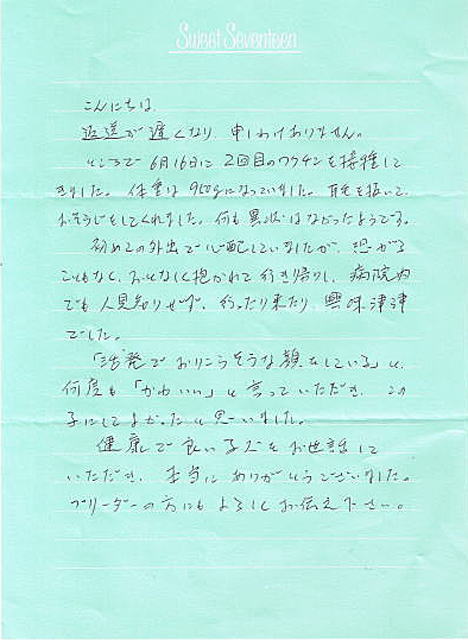 Sweet Seventeen
こんにちは。
返送が遅くなり、申しわけありません。
ところで6月16日に2回目のワクチンを接種して
きました。体重は950gになっていました。耳毛を抜いて、
おそうじをしてくれました。何も異状はなかったようです。
初めての外出で心配していましたが、恐がる
こともなく、おとなしく抱かれて行き帰りし、病院内
でも人見知りせず、行ったり来たり、興味津津
でした。
「活発でおりこうそうな顔をしている」と、
何度も「かわいい」と言っていただき、この
子にしてよかったと思いました。
健康で良い子犬をお世話して
いただき、本当にありがとうございました。
ブリーダーの方にもよろしくお伝え下さい。